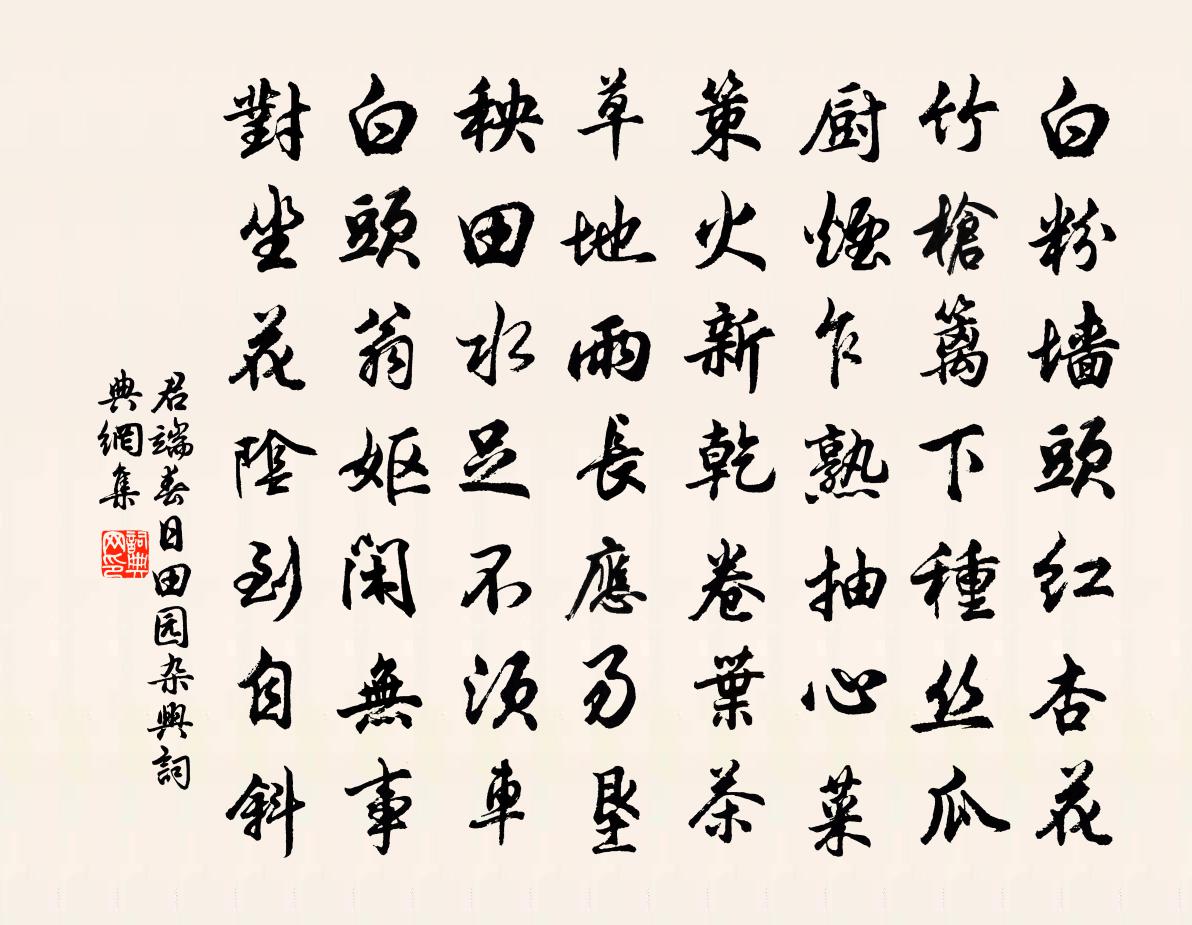 白粉墙頭紅杏花
竹槍籬下種丝瓜
厨煙乍熟抽心菜
策火新乾卷葉茶
草地雨長應易墾
秧田水足不須車
白頭翁嫗閑無事
對坐花陰到自斜
君端春日田园杂興詞
典網集
詞典网印